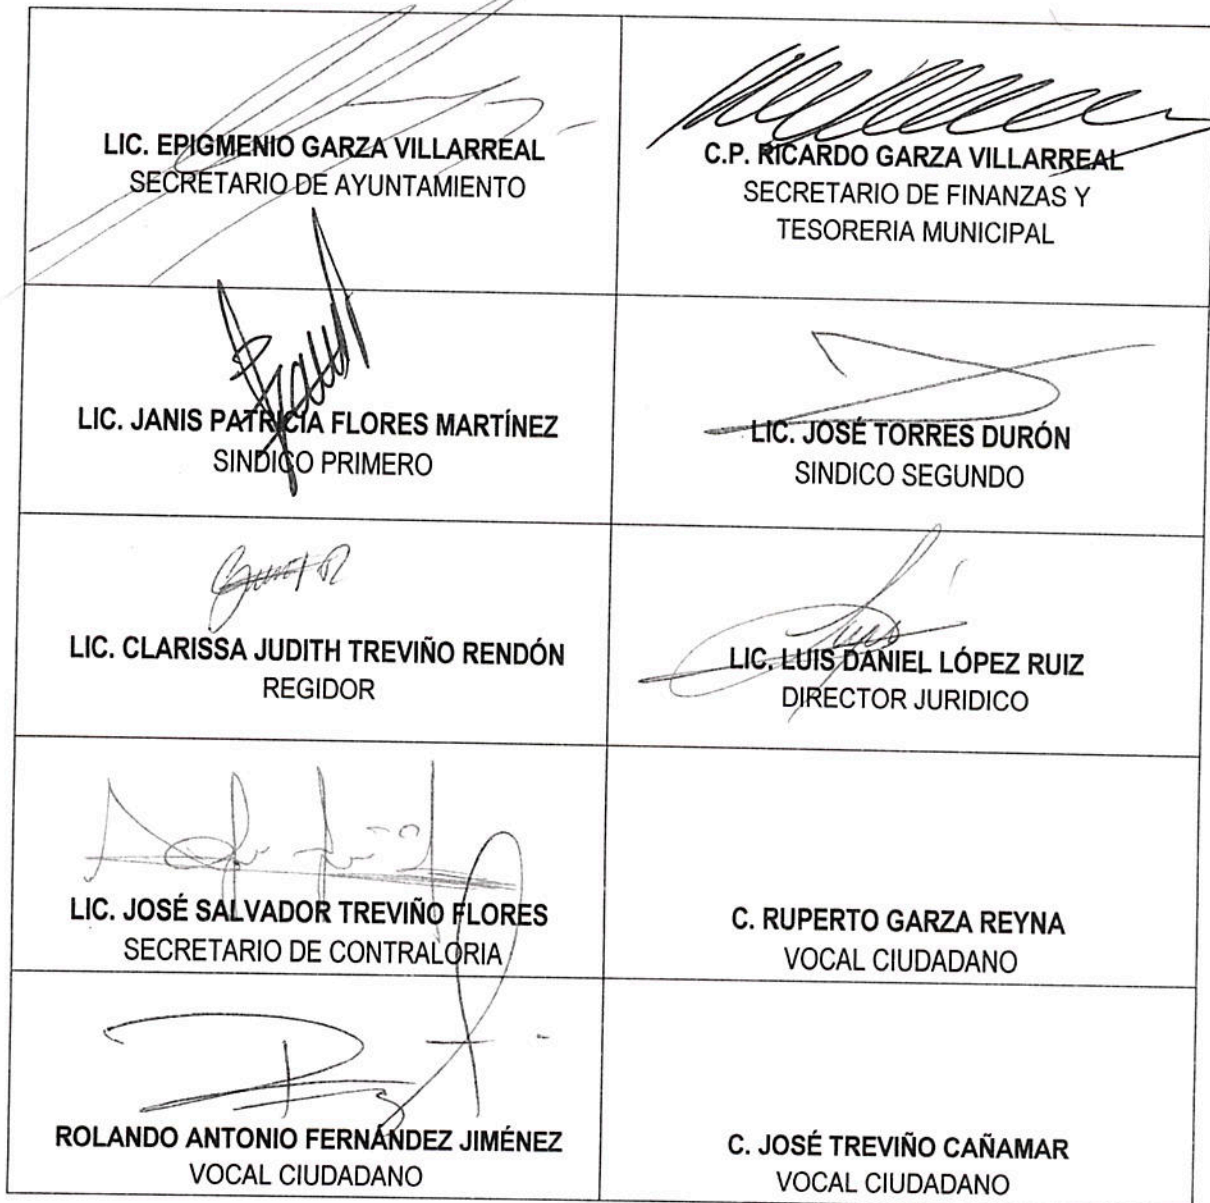 LIC. EPIGMENIO GARZA VILLARREAL
SECRETARIO DE AYUNTAMIENTO
C.P. RICARDO GARZA VILLARREAL
SECRETARIO DE FINANZAS Y
TESORERIA MUNICIPAL
LIC. JANIS PATRICIA FLORES MARTÍNEZ
SINDICO PRIMERO
LIC. JOSÉ TORRES DURÓN
SINDICO SEGUNDO
LIC. CLARISSA JUDITH TREVIÑO RENDÓN
REGIDOR
LIC. LUIS DANIEL LÓPEZ RUIZ
DIRECTOR JURIDICO
LIC. JOSÉ SALVADOR TREVIÑO FLORES
SECRETARIO DE CONTRALORIA
C. RUPERTO GARZA REYNA
VOCAL CIUDADANO
ROLANDO ANTONIO FERNÁNDEZ JIMÉNEZ
VOCAL CIUDADANO
C. JOSÉ TREVIÑO CAÑAMAR
VOCAL CIUDADANO